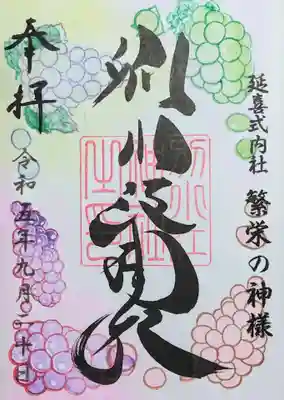 延喜式内社 繁栄の神様
別小江神社
奉拝
令和五年九月二十日